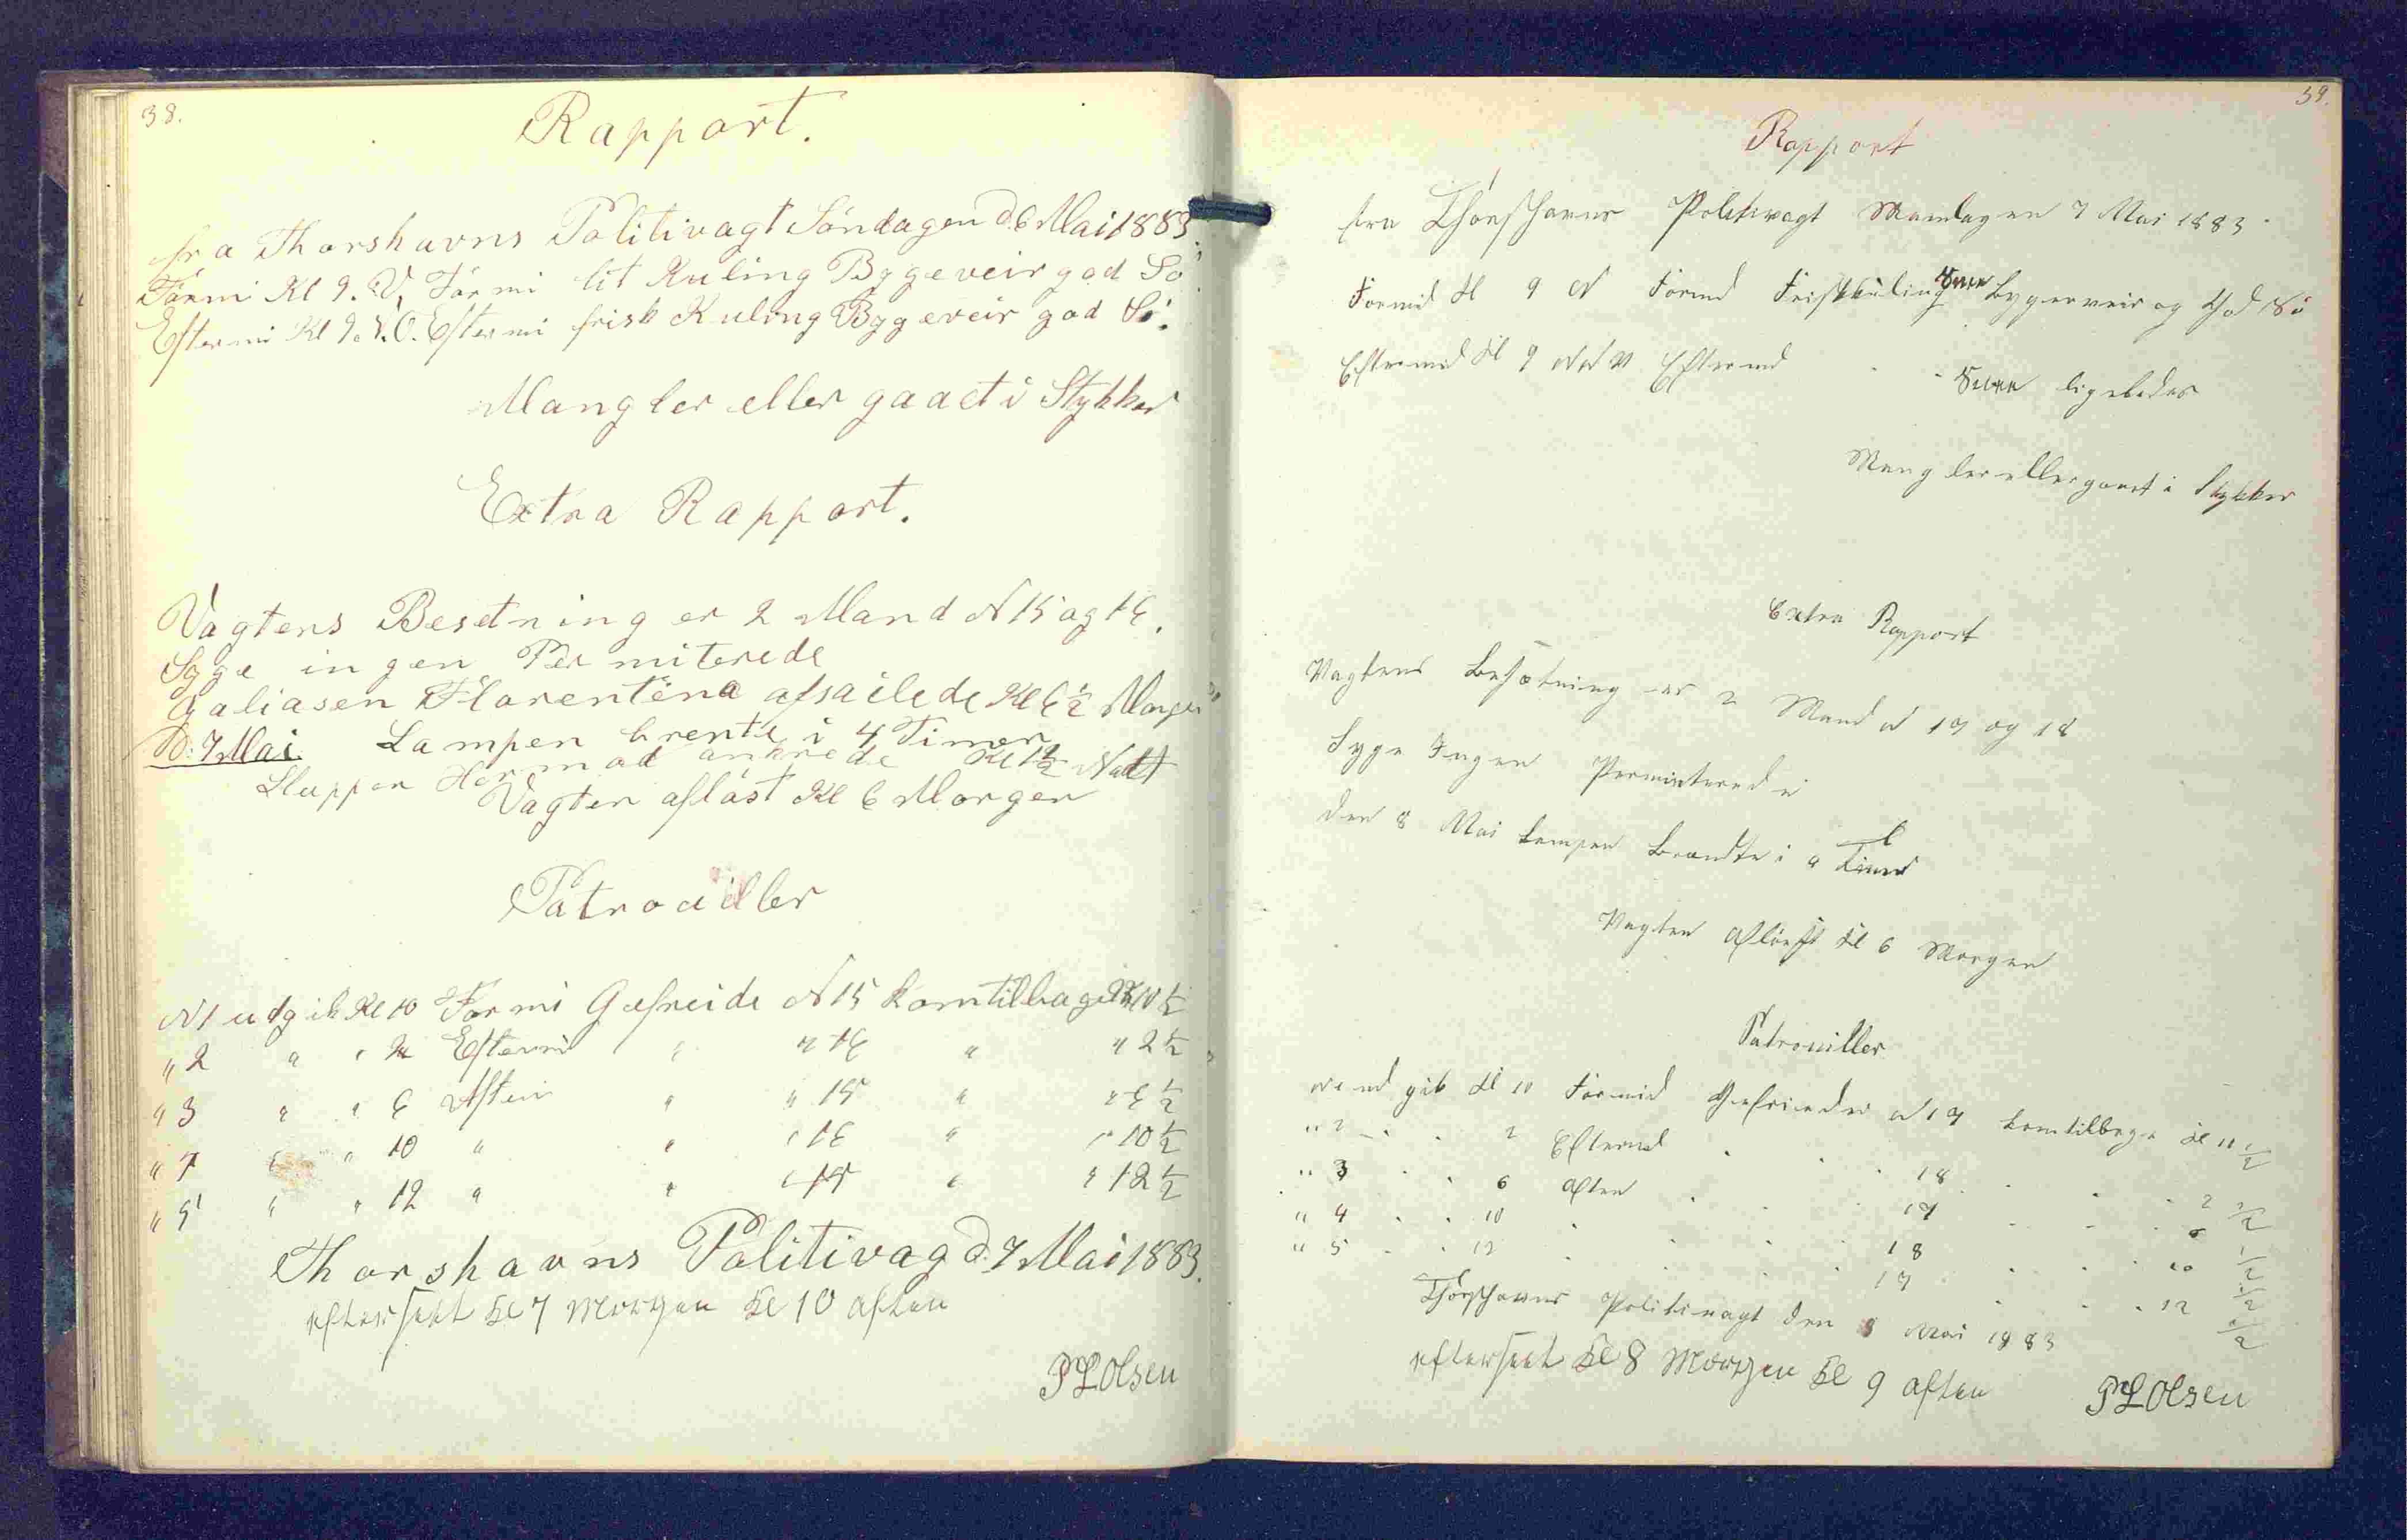 38.
Rapport.
fra Thorshavns Politivagt Söndagen d. 6 Mai 1883.
Formi Kl 9. V, Formi lit Kuling Bygeveir god Sö.
Eftermi Kl 9. V.O. Eftermi frisk Kuling Bygeveir god Sö.
Mangler eller gaaet i Stykker
Extra Rapport.
Vagtens Besetning er 2 Mand N 15 og 16.
Syge ingen Permiterede
Galiasen Florentina afsailede Kl 6 1/2 Morgen
D: 7 Mai. Lampen brente i 4 Timer
Sluppen Hermod ankrede Kl 1 1/2 Natt
Vagten aflöst Kl 6 Morgen
Patrouiller
N 1 udgik Kl 10 Formi Gefreide N 15 kom tilbage Kl 10 1/2
" 2 " " 2 Eftermi " " 16 " " 2 1/2
" 3 " " 6 Aften " " 15 " " 6 1/2
" 4 " " 10 " " " 16 " " 10 1/2
" 5 " " 12 " " " 15 " " 12 1/2
Thorshavns Politivag d. 7 Mai 1883.
efterseet Kl 7 Morgen Kl 10 aften
P L Olsen
39.
Rapport
fra Thorshavns Politivagt Mandagen 7 Mai 1883.
Formid Kl 9 N Formd Friskkuling Snee Bygerveir og God Sö
Eftermid Kl 9 Eftermd " " Snee ligeledes
Mangler eller gaaet i Stykker
Extra Rapport
Vagtens Besætning er 2 Mand N 17 og 18
Syge Ingen Permiterede
den 8 Mai Lampen Brændte i 4 Timer
Vagten aflöst Kl 6 Morgen
Patrouiller
N 1 udgik Kl 10 Formid Gefreider N 17 kom tilbage Kl 10 1/2
" 2 " " 2 Eftermd " " 18 " " 2 1/2
" 3 " " 6 aften " " 17 " " 6 1/2
" 4 " " 10 " " " 18 " " 10 1/2
" 5 " " 12 " " " 17 " " 12 1/2
Thorshavns Politivagt den 8 Mai 1883
efterseet Kl 8 Morgen Kl 9 aften
P L Olsen